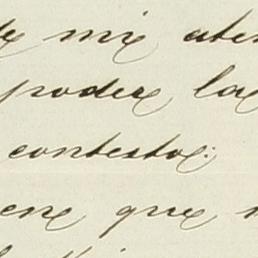 de mi aten
poder los
contestar:
ene que